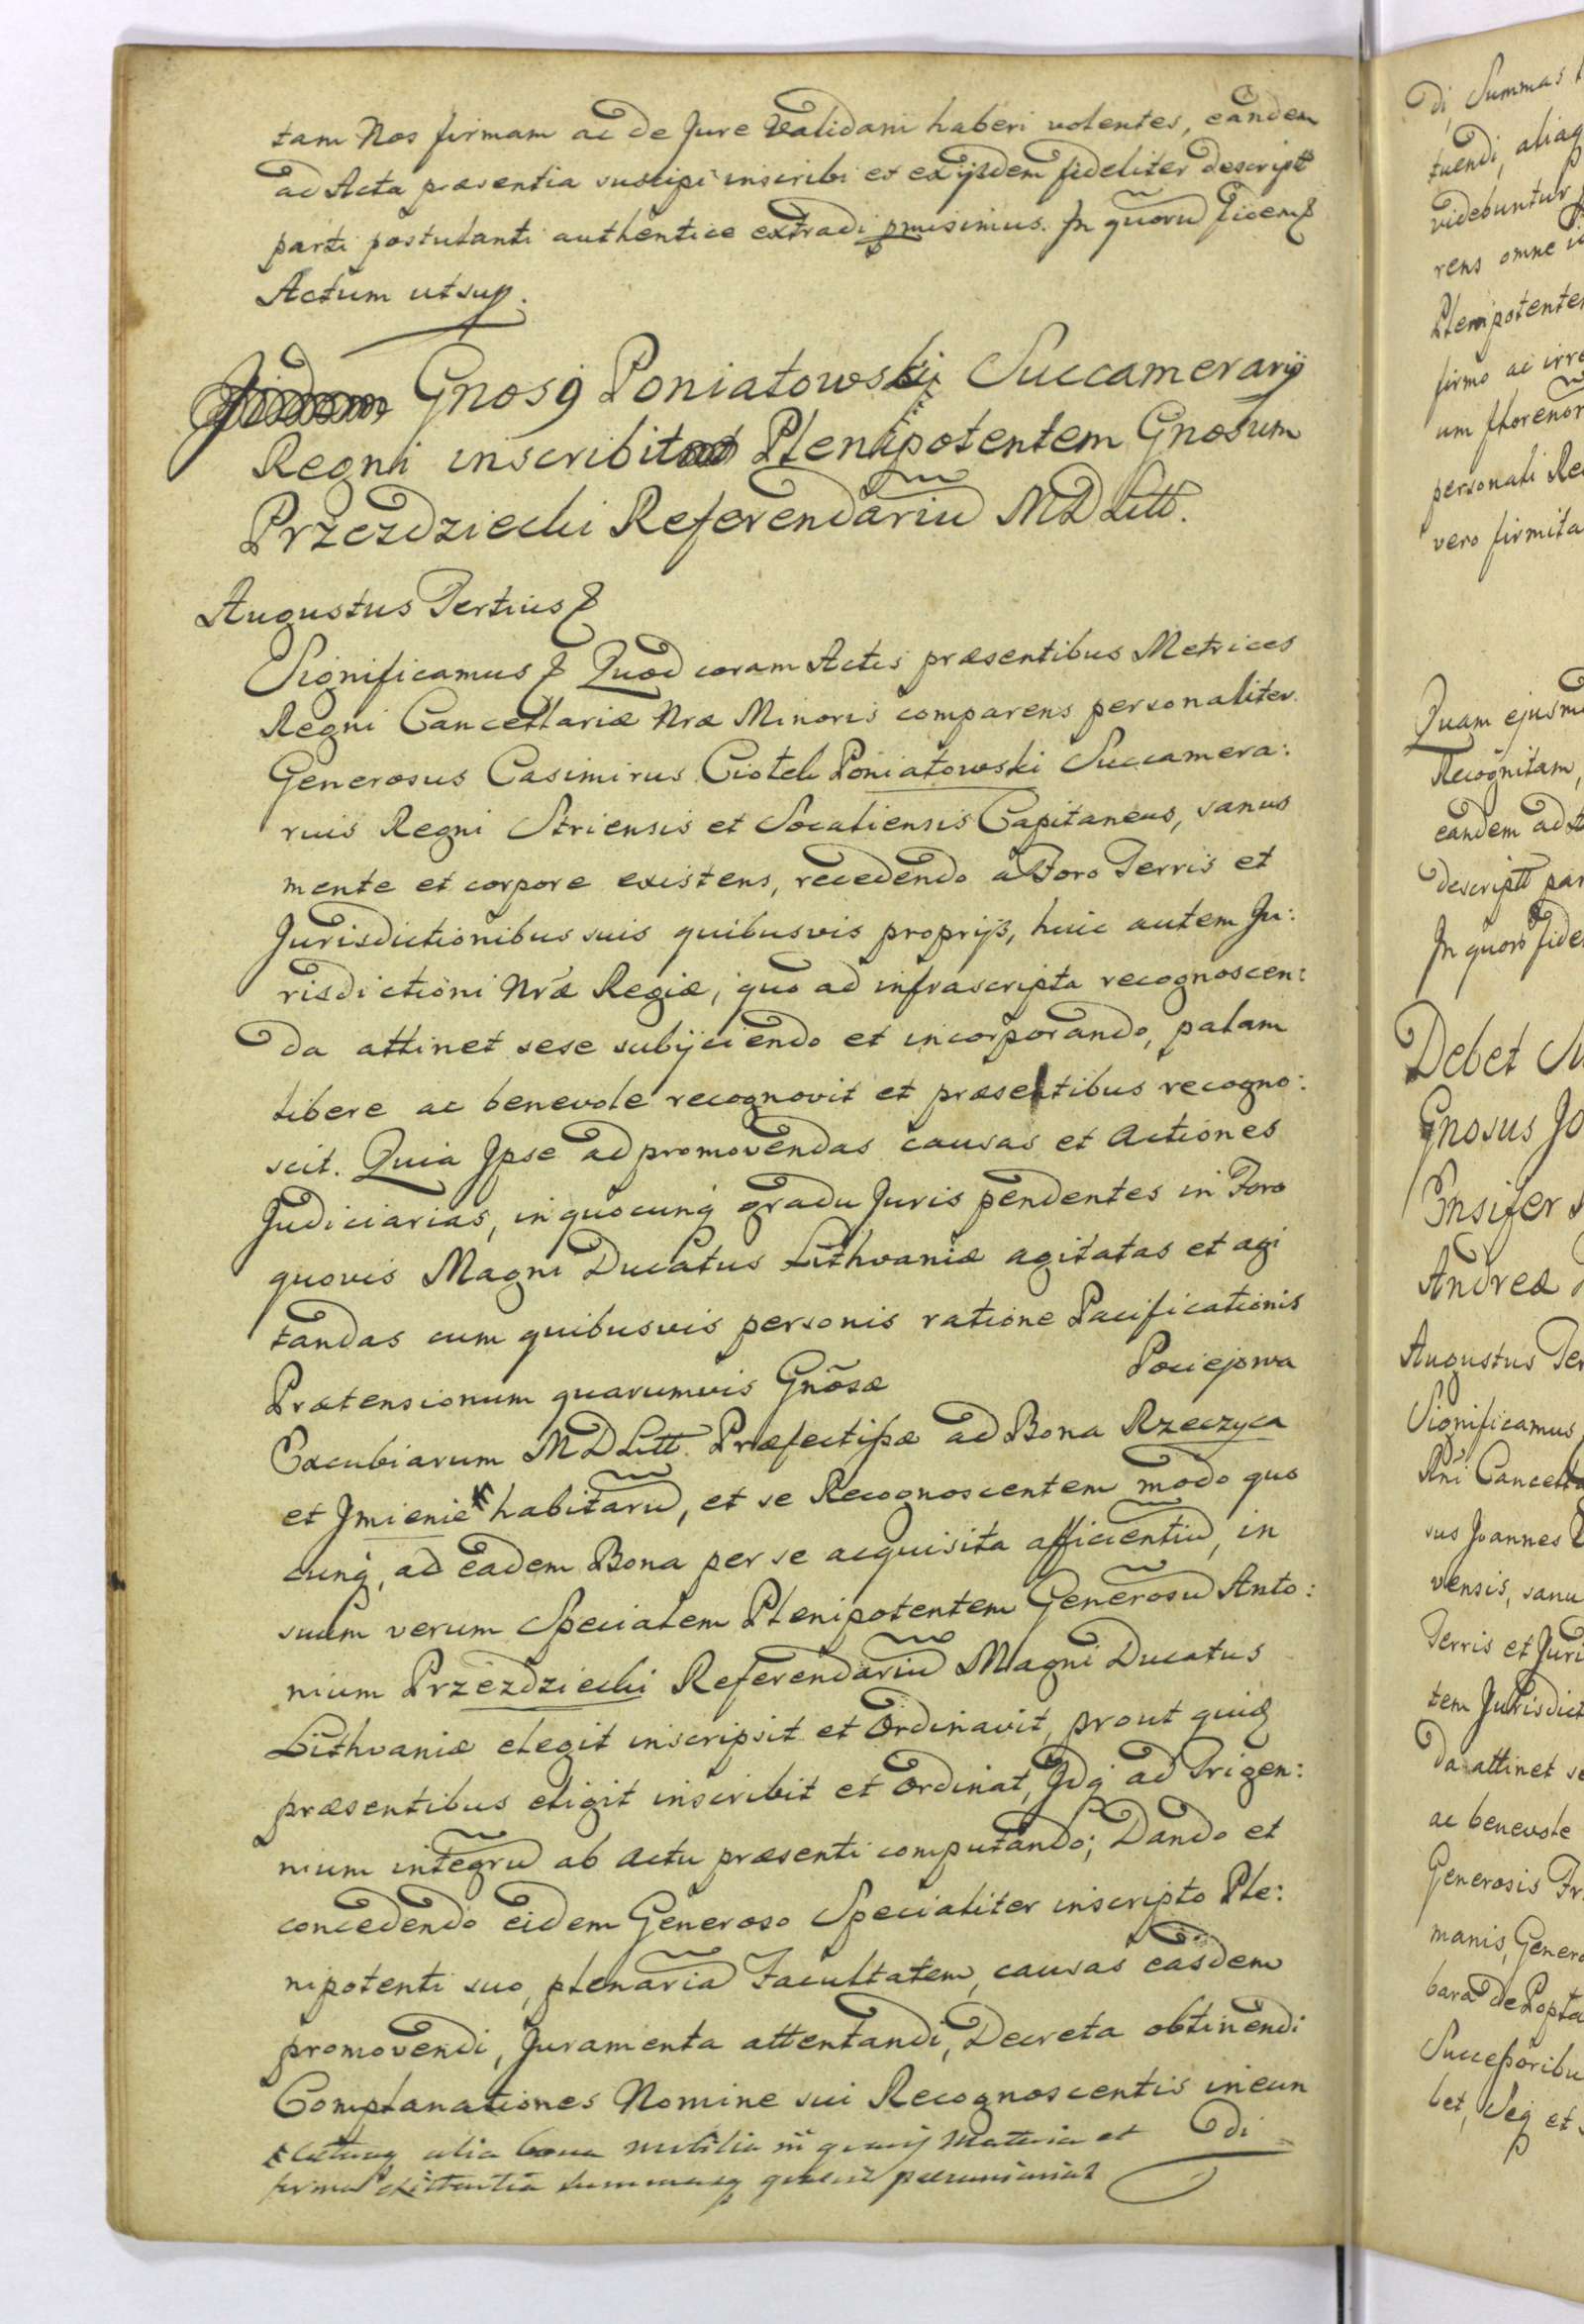 tam Nos firmam ac de Jure validam haberi volentes, eandem
ad Acta præsentia suscipi inscribi et ex ijsdem fideliter descript
parti postulanti authentice extradi pmisimus. In quoru fidem
Actum ut sup.
Gnosq Poniatowskij Succamerarij
Regni inscribit Plenipotentem Gnosum
Przezdziecki Referendariu MDLitt.
Augustus Tertius
Significamus Quod coram Actis præsentibus Metrices
Regni Cancellariæ Nræ Minoris comparens personaliter
Generosus Casimirus Ciołek Poniatowski Succamera:
rius Regni Striensis et Socaliensis Capitaneus, sanus
mente et corpore existens, recedendo a Foro Terris et
Jurisdictionibus suis quibusvis proprijs, huic autem Ju:
risdictioni Nræ Regiæ, quo ad infrascripta recognoscen:
da attinet sese subijciendo et incorporando, palam
libere ac benevole recognovit et præsentibus recogno:
scit. Quia Ipse ad promovendas causas et Actiones
Judiciarias, in quocunq gradu Juris pendentes in Foro
quovis Magni Ducatus Lithvaniæ agitatas et agi
tandas cum quibusvis personis ratione Pacificationis
Prætensionum quarumvis Gnosæ Pociejowa
Excubiarum MDLitt. Præfectissæ ad Bona Rzeczyca
et Jmienie habitaru, et se Recognoscentem modo quo
cunq, ad eadem Bona per se acquisita afficientiu, in
suum verum Specialem Plenipotentem Generosu Anto:
nium Przezdziecki Referendariu Magni Ducatus
Lithvaniæ elegit inscripsit et ordinavit, prout quidem
præsentibus eligit inscribit et ordinat, Idq ad Trigen:
nium integru ab actu præsenti computando; Dando et
concedendo eidem Generoso Specialiter inscripto Ple:
nipotenti suo, plenaria Facultatem, causas easdem
promovendi, Juramenta attentandi, Decreta obtinendi
Complanationes Nomine sui Recognoscentis ineun
di
alia bona mobilia in quavis Materia et
forma existentia summasq pecuniarias
di, Summas
tuendi, aliaq
videbuntur
rens omne
Plenipotente
firmo ac irr
um florenor
personali Re
vero firmita
Quam ejusm
Recognitam,
eandem ad
descriptt par
In quoru fide
Debet
Gnosus Jo
Ensifer
Andreæ
Augustus Ter
Significamus
Rni Cancella
sus Joannes
vensis, sanu
Terris et Juri
tem Jurisdict
da attinet se
ac benevole
Generosis Fr
manis, Genero
bara de Lopta
Successoribu
bet, Seq et